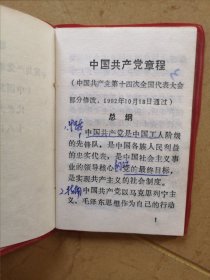 中国共产党章程
(中国共产党第十四次全国代表大会
部分修改,1992年10月18日通过)
总纲
中国共产党是中国工人阶级
的先锋队,是中国各族人民利益
的忠实代表,是中国社会主义事
业的领导核心。党的最终目标,
是实现共产主义的社会制度。
中国共产党以马克思列宁主
义、毛泽东思想作为自己的行动
1